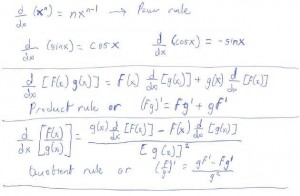 d/dx (xⁿ) = nxⁿ⁻¹ → Power rule
d/dx (sinx) = cosx    d/dx (cosx) = -sinx
d/dx [F(x) g(x)] = F(x) d/dx [g(x)] + g(x) d/dx [F(x)]
Product rule or (Fg)' = Fg' + gF'
d/dx [F(x)/g(x)] = (g(x) d/dx [F(x)] - F(x) d/dx [g(x)]) / [g(x)]²
Quotient rule or (F/g)' = (gF' - Fg') / g²